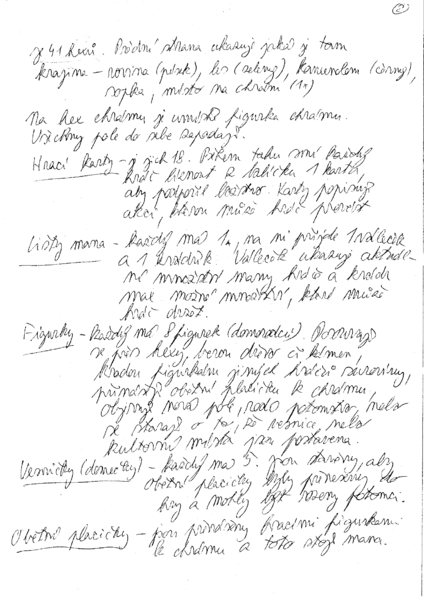 ②
je 41 hexů. Přední strana ukazuje jaká je tam
krajina – rovina (písek), les (zelený), kamenolom (černý),
sopka, místo na chrám (1x)
Na hex chrámu je umístě figurka chrámu.
Všechny pole do sebe zapadají.
Hrací karty – je jich 18. Během tahu smí každý
hráč líznout z balíčku 1 kartu,
aby podpořil božstvo. Karty popisují
akci, kterou může hráč provést
Listy mana – každý má 1, na ni přijde 1 váleček
a 1 kvádřík. Váleček ukazuje aktuál-
ní množství many hráče a kvádr
max možné množství, které může
hráč držet.
Figurky – každý má 8 figurek (domorodci). Posouvají
se přes hexy, berou dřevo či kámen,
kradou figurkám jiných hráčů suroviny,
přináší obětní placičku k chrámu,
objevují nová pole, rodí potomstvo, nebo
se starají o to, že vesnice, nebo
kultovní místa jsou postavena.
Vesničky (domečky) – každý má 5. jsou stavěny, aby
obětní placičky byly přineseny do
hry a mohly být rozeny potomci.
Obětní placičky – jsou přinášeny hracími figurkami
k chrámu a toto stojí mana.